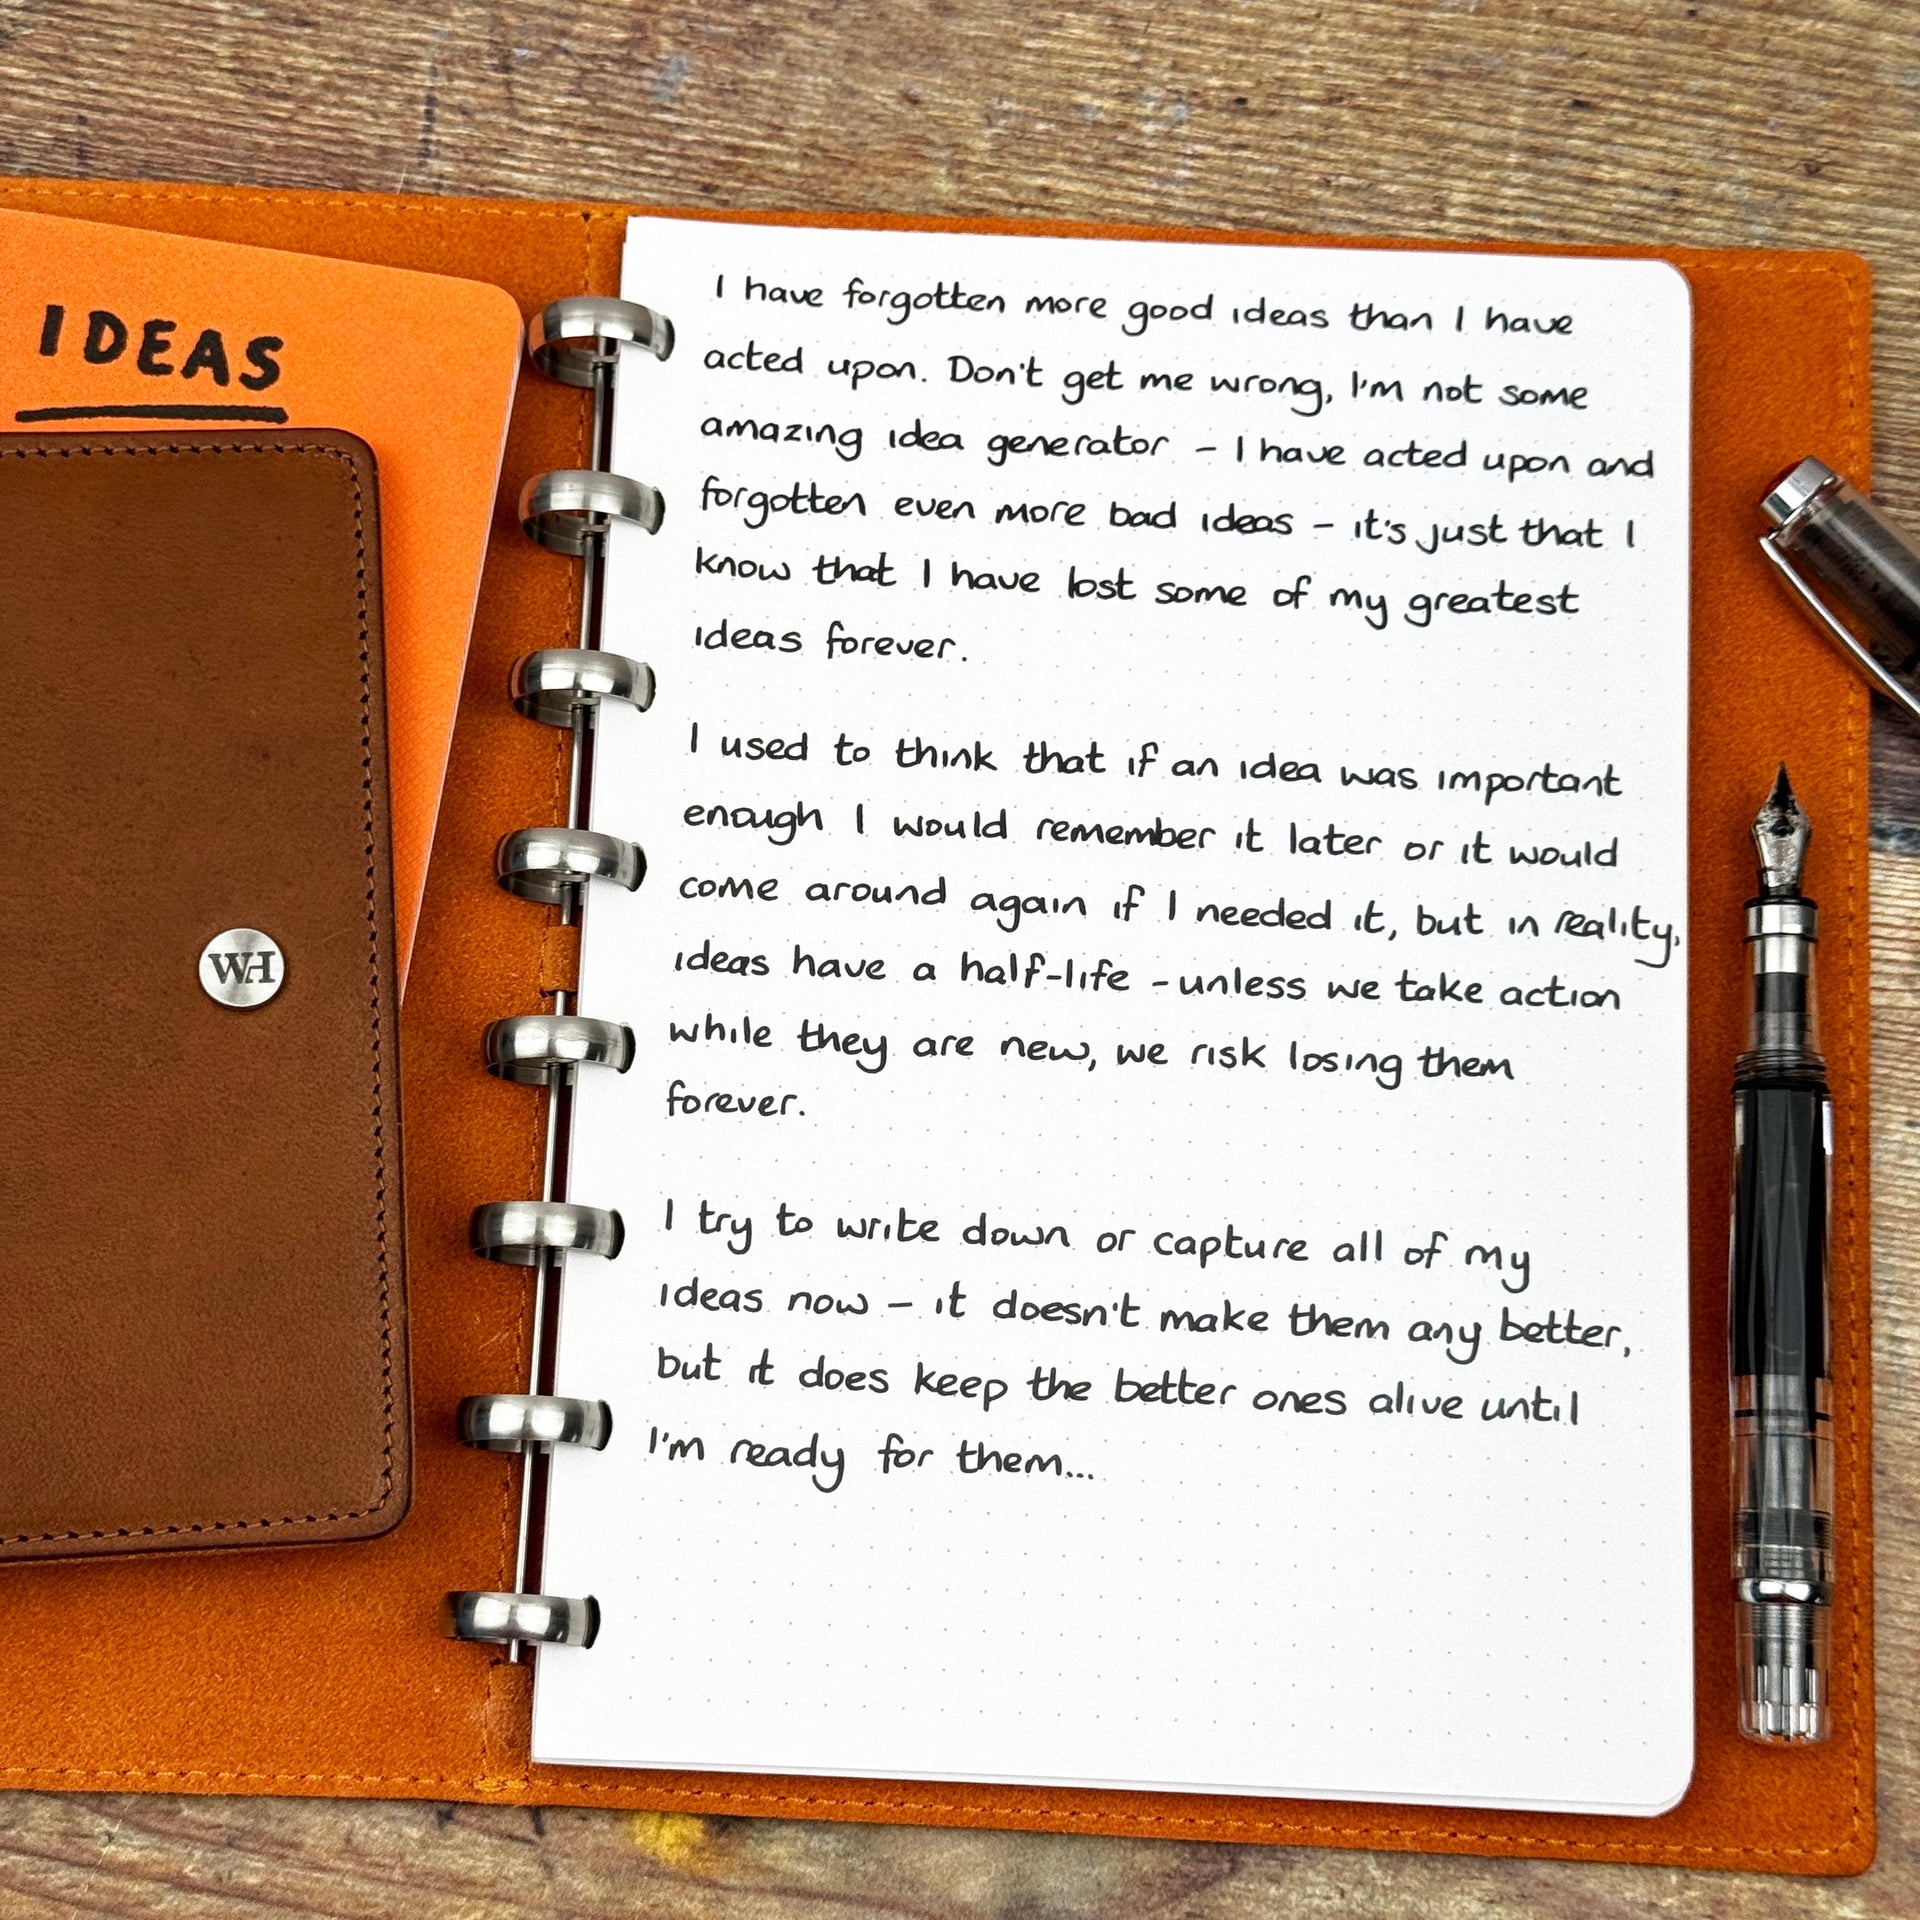 IDEAS
WH
I have forgotten more good ideas than I have
acted upon. Don't get me wrong, I'm not some
amazing idea generator – I have acted upon and
forgotten even more bad ideas – it's just that I
know that I have lost some of my greatest
ideas forever.
I used to think that if an idea was important
enough I would remember it later or it would
come around again if I needed it, but in reality,
ideas have a half-life – unless we take action
while they are new, we risk losing them
forever.
I try to write down or capture all of my
ideas now – it doesn't make them any better,
but it does keep the better ones alive until
I'm ready for them...